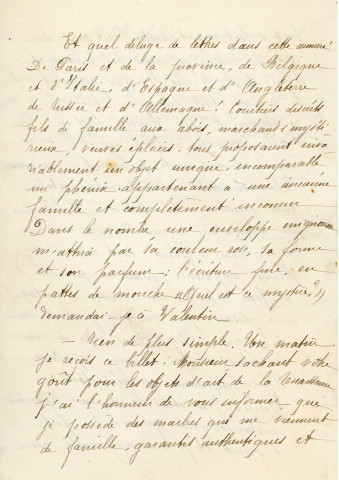 Et quel déluge de lettres dans cette
De Paris et de la province, de Belgique
et d'Italie, d'Espagne et d'Angleterre
de Russie et d'Allemagne! Courtiers discrets
fils de famille aux abois, marchands mysté
rieux, veuves éplorées. tous proposaient inva
riablement un objet unique, incomparable
un phénix appartenant à une ancienne
famille et complètement inconnu
Dans le nombre une enveloppe mignonne
m'attira par sa couleur rose, sa forme
et son parfum; l'écriture fine, en
pattes de mouche "Quel est ce mystère?"
demandai-je à Valentin
— Rien de plus simple. Un matin
je reçois ce billet: Monsieur sachant votre
goût pour les objets d'art de la Renaissance
j'ai l'honneur de vous informer que
je possède des marbres qui me viennent
de famille, garantis authentiques et